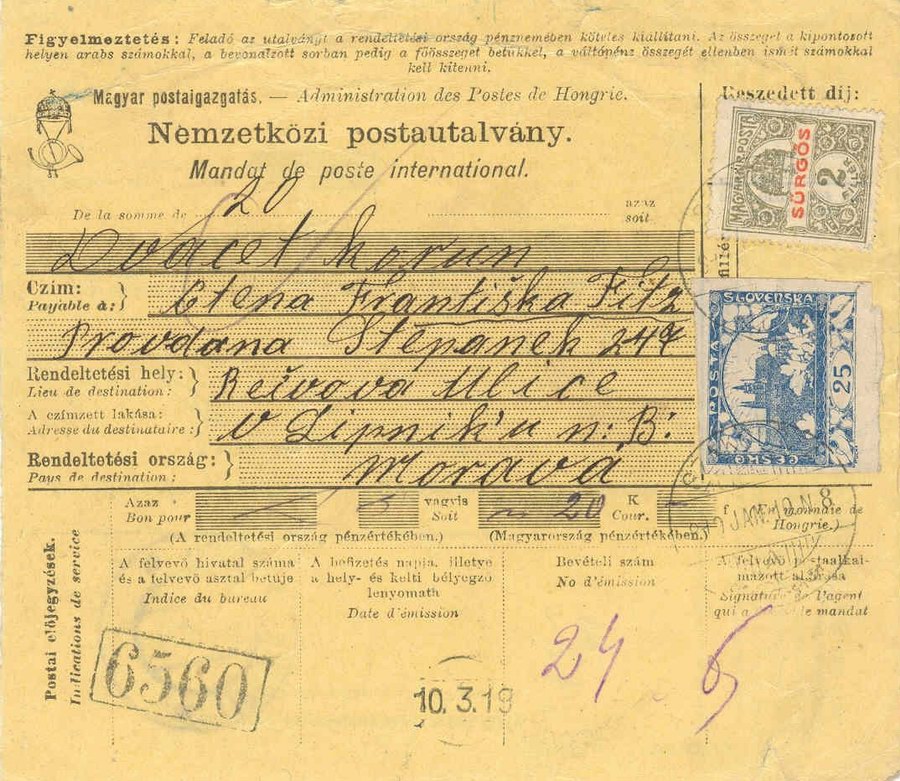 Figyelmeztetés: Feladó az utalványt a rendeltetési ország pénznemében köteles kiállítani. Az összeget a kipontozott
helyen arabs számokkal, a bevonalzott sorban pedig a főösszeget betükkel, a váltópénz összegét ellenben ismét számokkal
kell kitenni.
Magyar postaigazgatás. — Administration des Postes de Hongrie.
Beszedett díj:
Nemzetközi postautalvány.
Mandat de poste international.
MAGYAR KIR. POSTA
SÜRGŐS
2
De la somme de 20 azaz
soit
Dvacet korun
fillér
Czím:
Payable à:
Ctena Františka Fitz
Provdana Štepanek 247
Rendeltetési hely:
Lieu de destination:
Ulice
A czímzett lakása:
Adresse du destinataire:
V Lipnik'u n: B:
Rendeltetési ország:
Pays de destination:
Morava
POŠTA
ČESKO
SLOVENSKÁ
25
Azaz
Bon pour
vagyis
Soit
20 K
Cour.
f
monnaie de
Hongrie.)
(A rendeltetési ország pénzértékében.)
(Magyarország pénzértékében.)
919 JAN. 10. N. 8
Postai előjegyzések.
Indications de service
A felvevő hivatal száma
és a felvevő asztal betűje
Indice du bureau
A befizetés napja, illetve
a hely- és kelti bélyegző
lenyomath
Date d'émission
Bevételi szám
No d'émission
A felvevő postaalkal-
mazott aláírása
Signature de l'agent
qui a le mandat
6560
10.3.19
24